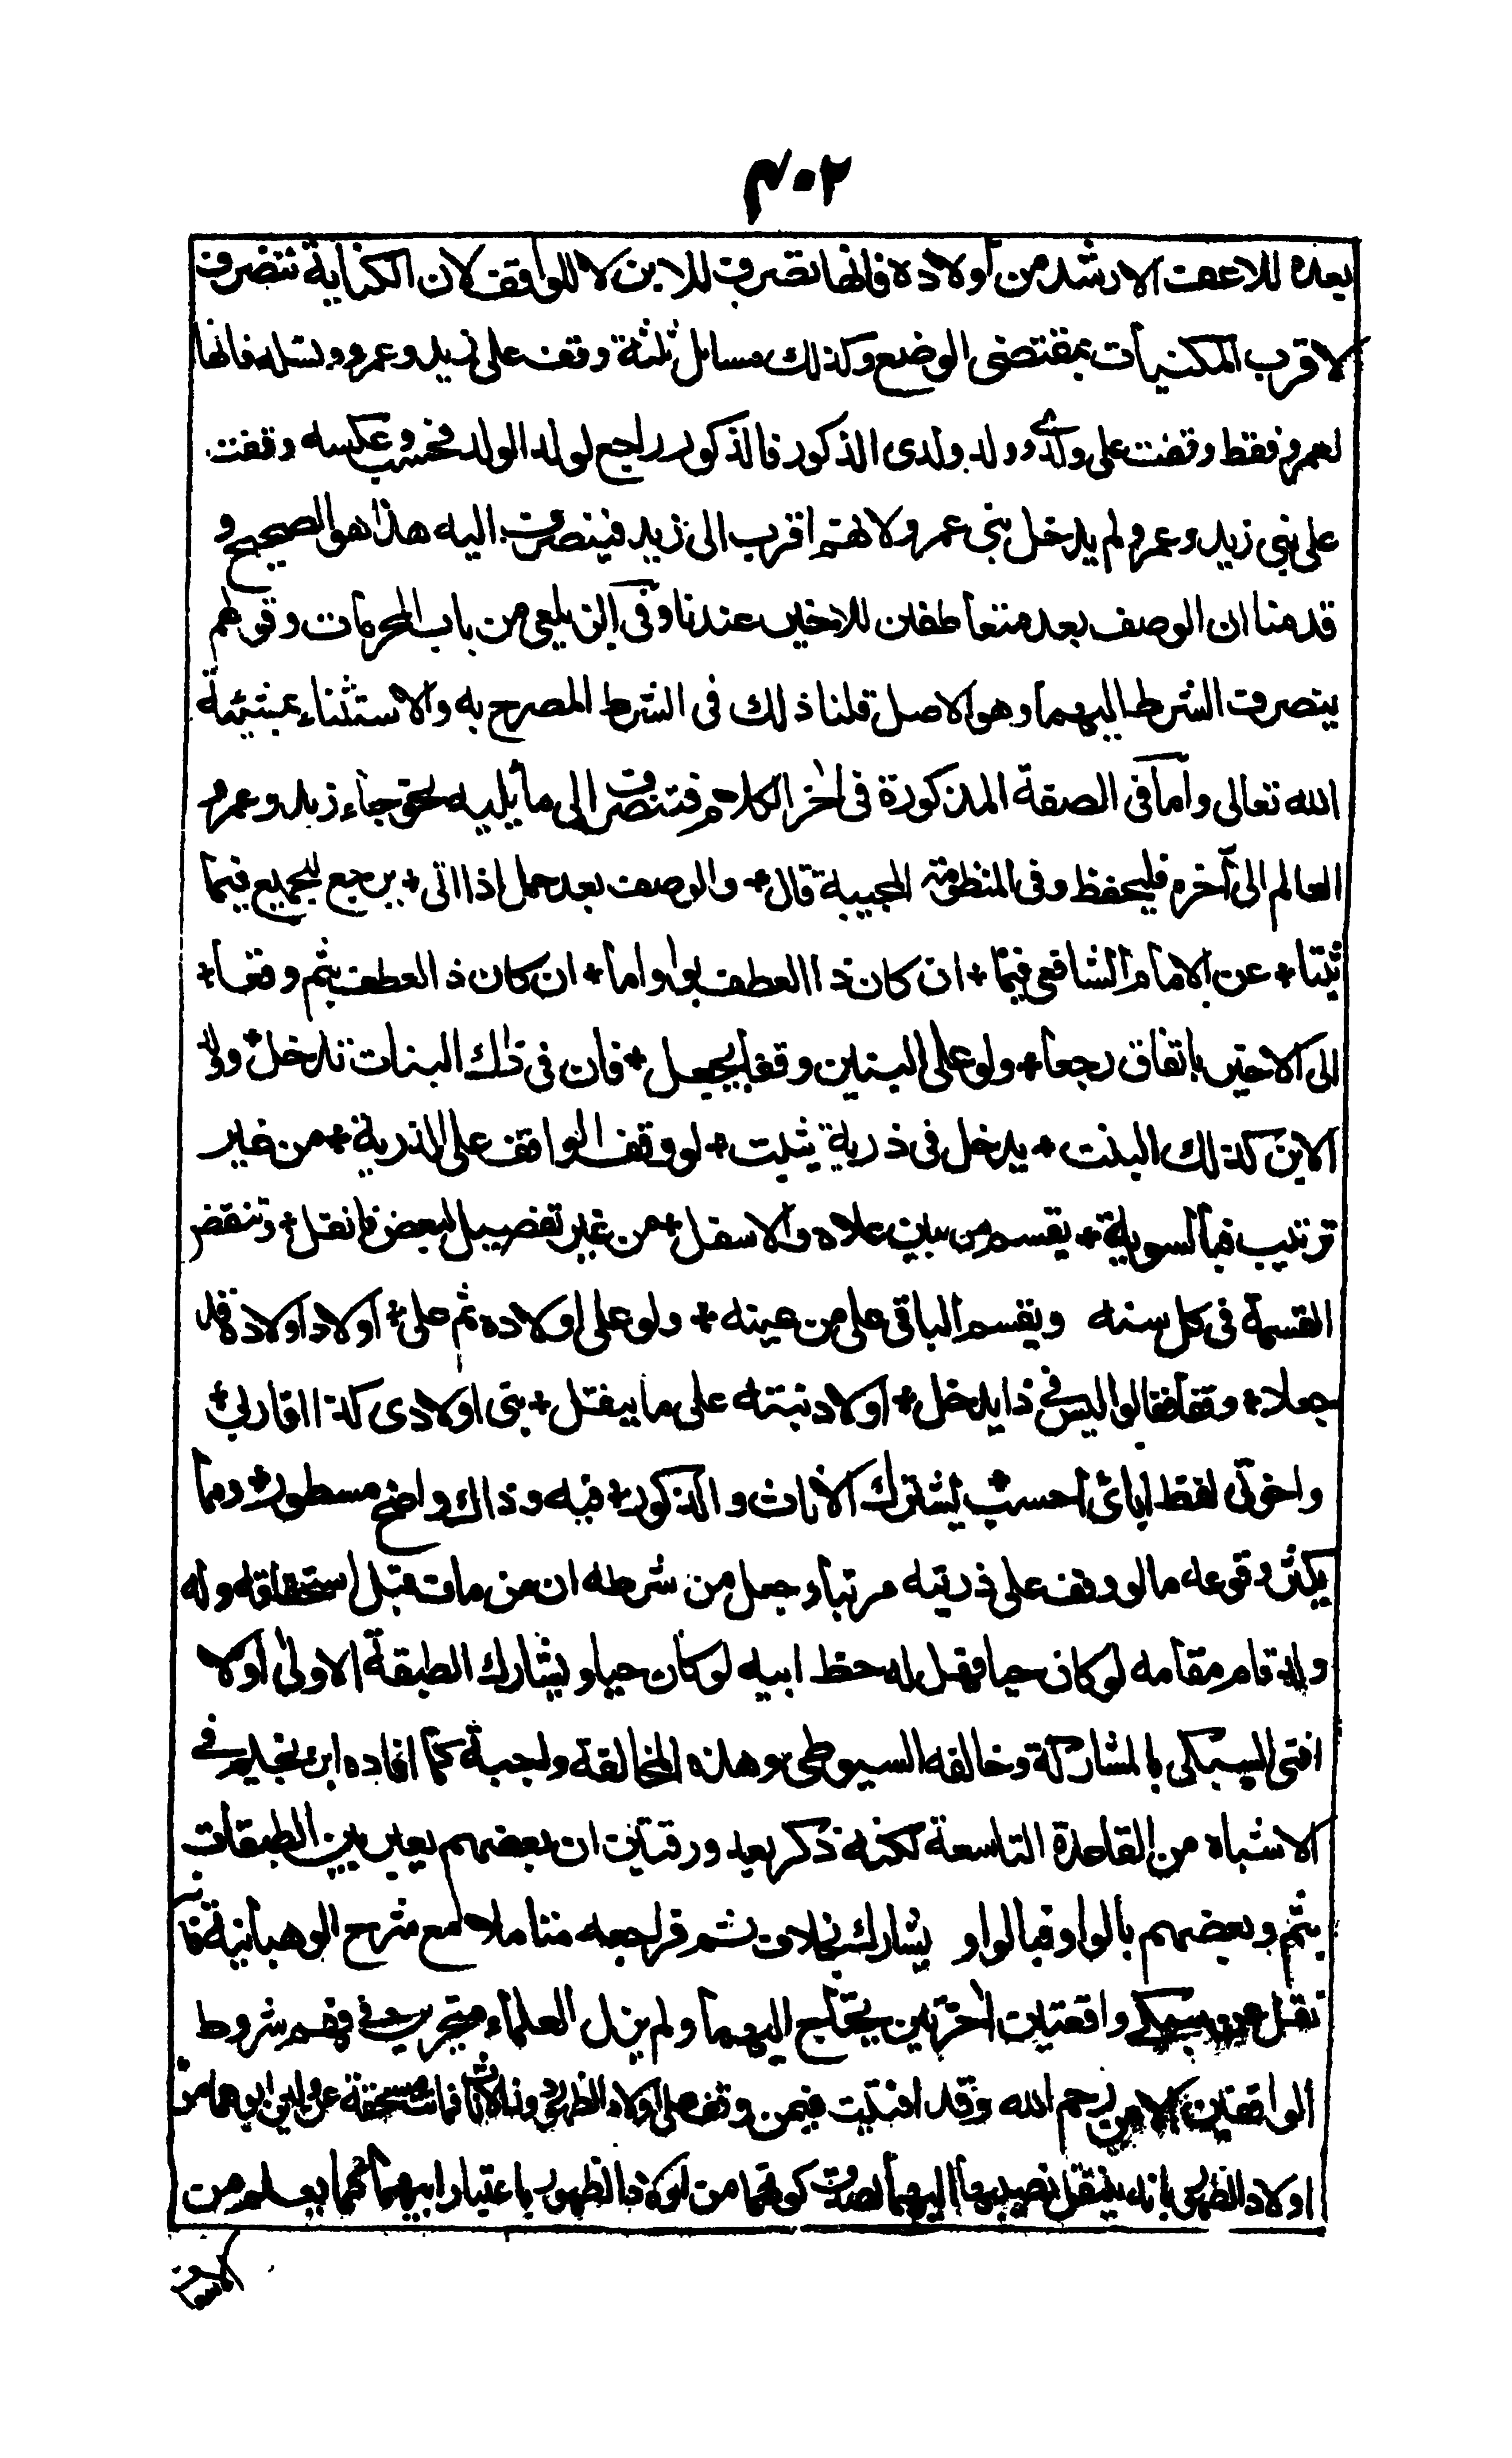 ٤٠٢
بعده للاعف الارشد من أولاده فانها تصرف للابن لا للواقف لان الكناية تنصرف
لاقرب المكنيات بمقتضى الوضع وكذلك مسائل ثلثة وقف على زيد وعمرو ونسله فالها
لعمرو فقط وقفت على ولدى وولد ولدى الذكور فالذكور راجع لولد الولد فحسب وعكسه وقفت
على بنى زيد وعمرو لم يدخل بنى عمرو لانهم اقرب الى زيد فينصرف اليه هذا هو الصحيح و
قدمنا ان الوصف بعد متعاطفين للاخير عندنا وفى الزيلعى من باب المحرمات وقولهم
ينصرف الشرط اليهما وهو الاصل قلنا ذلك فى الشرط المصرح به والاستثناء بمشيئة
الله تعالى وأما فى الصفة المذكورة فى اخر الكلام فتنصرف الى ما يليه نحو جاء زيد وعمرو
العالم الى آخره فليحفظ وفى المنظومة المحبية قال+ والوصف بعد جمل اذا اتى+ يرجع للجميع فيما
ثبتا+ عن الامام الشافعى فيما+ ان كان ذا العطف بواو اما+ ان كان ذ العطف بثم وقعا+
الى الاخير باتفاق رجعا+ ولو على البنين وقفا يجعل+ فان فى ذلك البنات تدخل+ وولد
الابن كذلك البنت+ يدخل فى ذرية يثبت+ لو وقف الواقف على الذرية+ من غير
ترتيب فبالسوية+ يقسم من بين علاه والاسفل+ من غير تفضيل لبعض فانقل+ وتنقض
القسمة فى كل سنه ويقسم الباقى على من عينه+ ولو على اولاده ثم على+ اولاد اولاده قد
جعلا+ وقفا فقالوا ليس فى ذا يدخل+ اولاد بنته على ما ينقل+ بنى اولادى كذا اقاربى+
واخوتى لفظ ابائى احسب+ يشترك الاناث والذكور+ فيه وذاك واضح مسطور+ ومما
يكثر وقوعه ما لو وقف على ذريته مرتبا وجعل من شرطه ان من مات قبل استحقاقه وله
ولد قام مقامه لو كان حيا فهل له حظ ابيه لو كان حيا ويشارك الطبقة الاولى اولا
افتى السبكى بالمشاركة وخالفه السيوطى وهذه المخالفة واجبة كما افاده ابن نجيم فى
الاشباه من القاعدة التاسعة لكنه ذكر بعد ورقتين ان بعضهم يعبر بين الطبقات
بثم وبعضهم بالواو فبالواو يشارك بخلاف ثم فراجعه متاملا مع شرح الوهبانية فانه
نقل عن السبكى واقعتين اخرتين يحتاج اليهما ولم يزل العلماء متحيرين فى فهم شروط
الواقفين الا من رحم الله وقد افتيت فيمن وقف على اولاد الظهور دون الاناث فماتت مستحقة عن ولدين ابوهما من
اولاد الظهور بانه ينتقل نصيبها اليهما لصدق كونهما من اولاد الظهور باعتبار ابيهما كما يعلم من